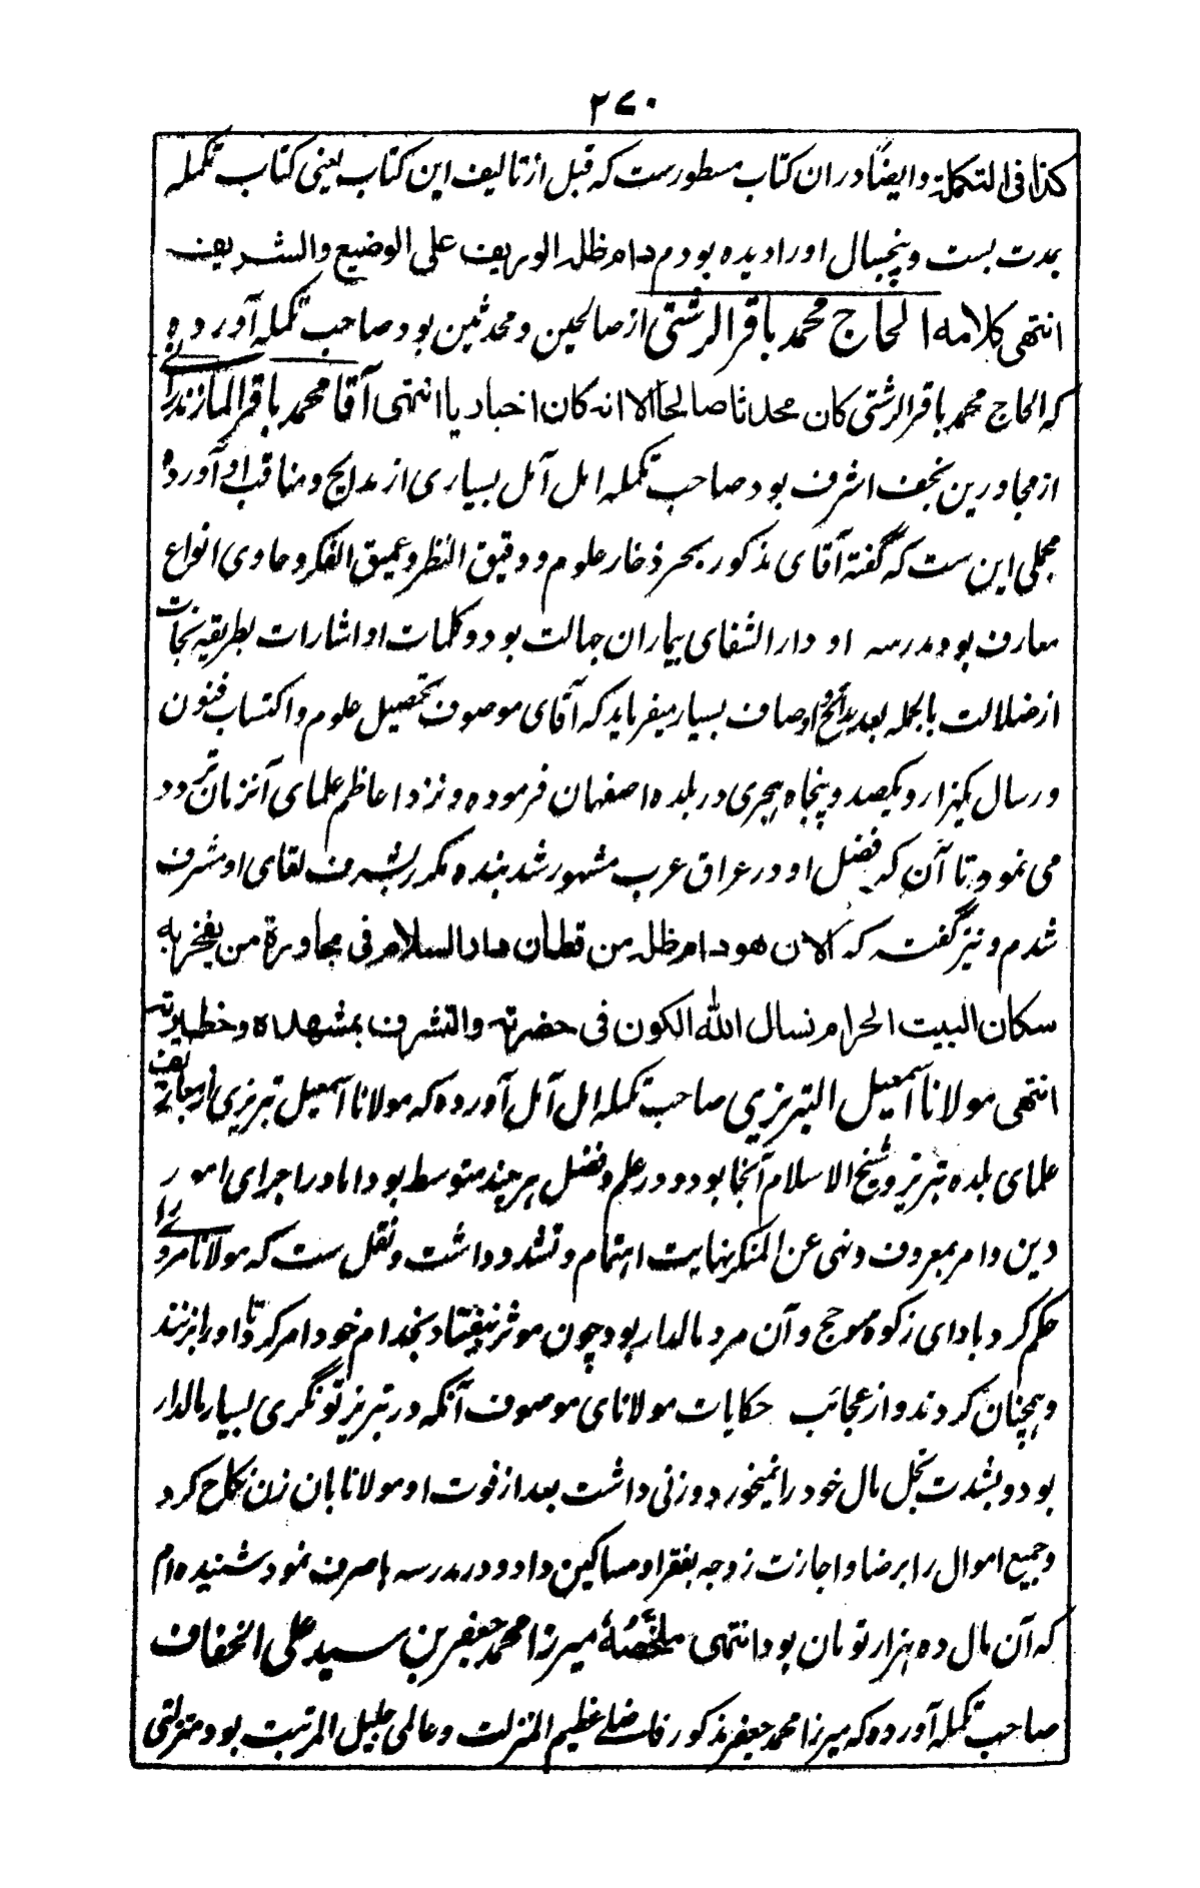 ۲۷۰
کذا فی التکملة و ایضاً دران کتاب مسطورست که قبل از تالیف این کتاب یعنی کتاب تکمله
بمدت بست و پنجسال او را دیده بودم دام ظله الوریف علی الوضیع والشریف
انتهی کلامه الحاج محمد باقر الرشتی از صالحین و محدثین بود صاحب تکمله آورده
که الحاج محمد باقر الرشتی کان محدثا صالحا الا انه کان اخباریا انتهی آقا محمد باقر المازندرانی
از مجاورین نجف اشرف بود صاحب تکمله امل آمل بسیاری از مدایح و مناقب او آورده
مجملی این ست که گفته آقای مذکور بحر ذخار علوم و دقیق النظر و عمیق الفکر و حاوی انواع
معارف بود مدرسه او دار الشفای بیماران جهالت بود و کلمات او اشارات بطریقه نجات
از ضلالت بالجمله بعد مدائح و اوصاف بسیار میفرماید که آقای موصوف تحصیل علوم و اکتساب فنون
در سال یکهزار و یکصد و پنجاه هجری در بلده اصفهان فرموده و نزد اعاظم علمای آنزمان تردد
می نمود تا آن که فضل او در عراق عرب مشهور شد بنده مکرر بشرف لقای او مشرف
شدم و نیز گفت که الان هو دام ظله من قطان دار السلام فی مجاورة من یفخر به
سکان البیت الحرام نسال الله الکون فی حضرته والتشرف بمشهده و خطیرته
انتهی مولانا اسمعیل التبریزی صاحب تکمله امل آمل آورده که مولانا اسمعیل تبریزی از طائفه
علمای بلده تبریز و شیخ الاسلام آنجا بود و در علم و فضل هر چند متوسط بود اما در اجرای امور
دین و امر بمعروف و نهی عن المنکر نهایت اهتمام و تشدد داشت و نقل ست که مولانا مردی را
حکم کرد بادای زکوه و حج و آن مرد مالدار بود چون موثر نیفتاد بخدام خود امر کرد تا او را بزنند
و همچنان کردند و از عجائب حکایات مولانای موصوف آنکه در تبریز تونگری بسیار مالدار
بود و بشدت بخل مال خود را نمیخورد و زنی داشت بعد از فوت او مولانا بان زن نکاح کرد
و جمیع اموال را برضا و اجازت زوجه بفقرا و مساکین داد و در مدرسه ها صرف نمود شنیده ام
که آن مال ده هزار تومان بود انتهی ملخصه میرزا محمد جعفر بن سید علی الخفاف
صاحب تکمله آورده که میرزا محمد جعفر مذکور فاضلے عظیم المنزلت و عالمی جلیل المرتبت بود منزلتی